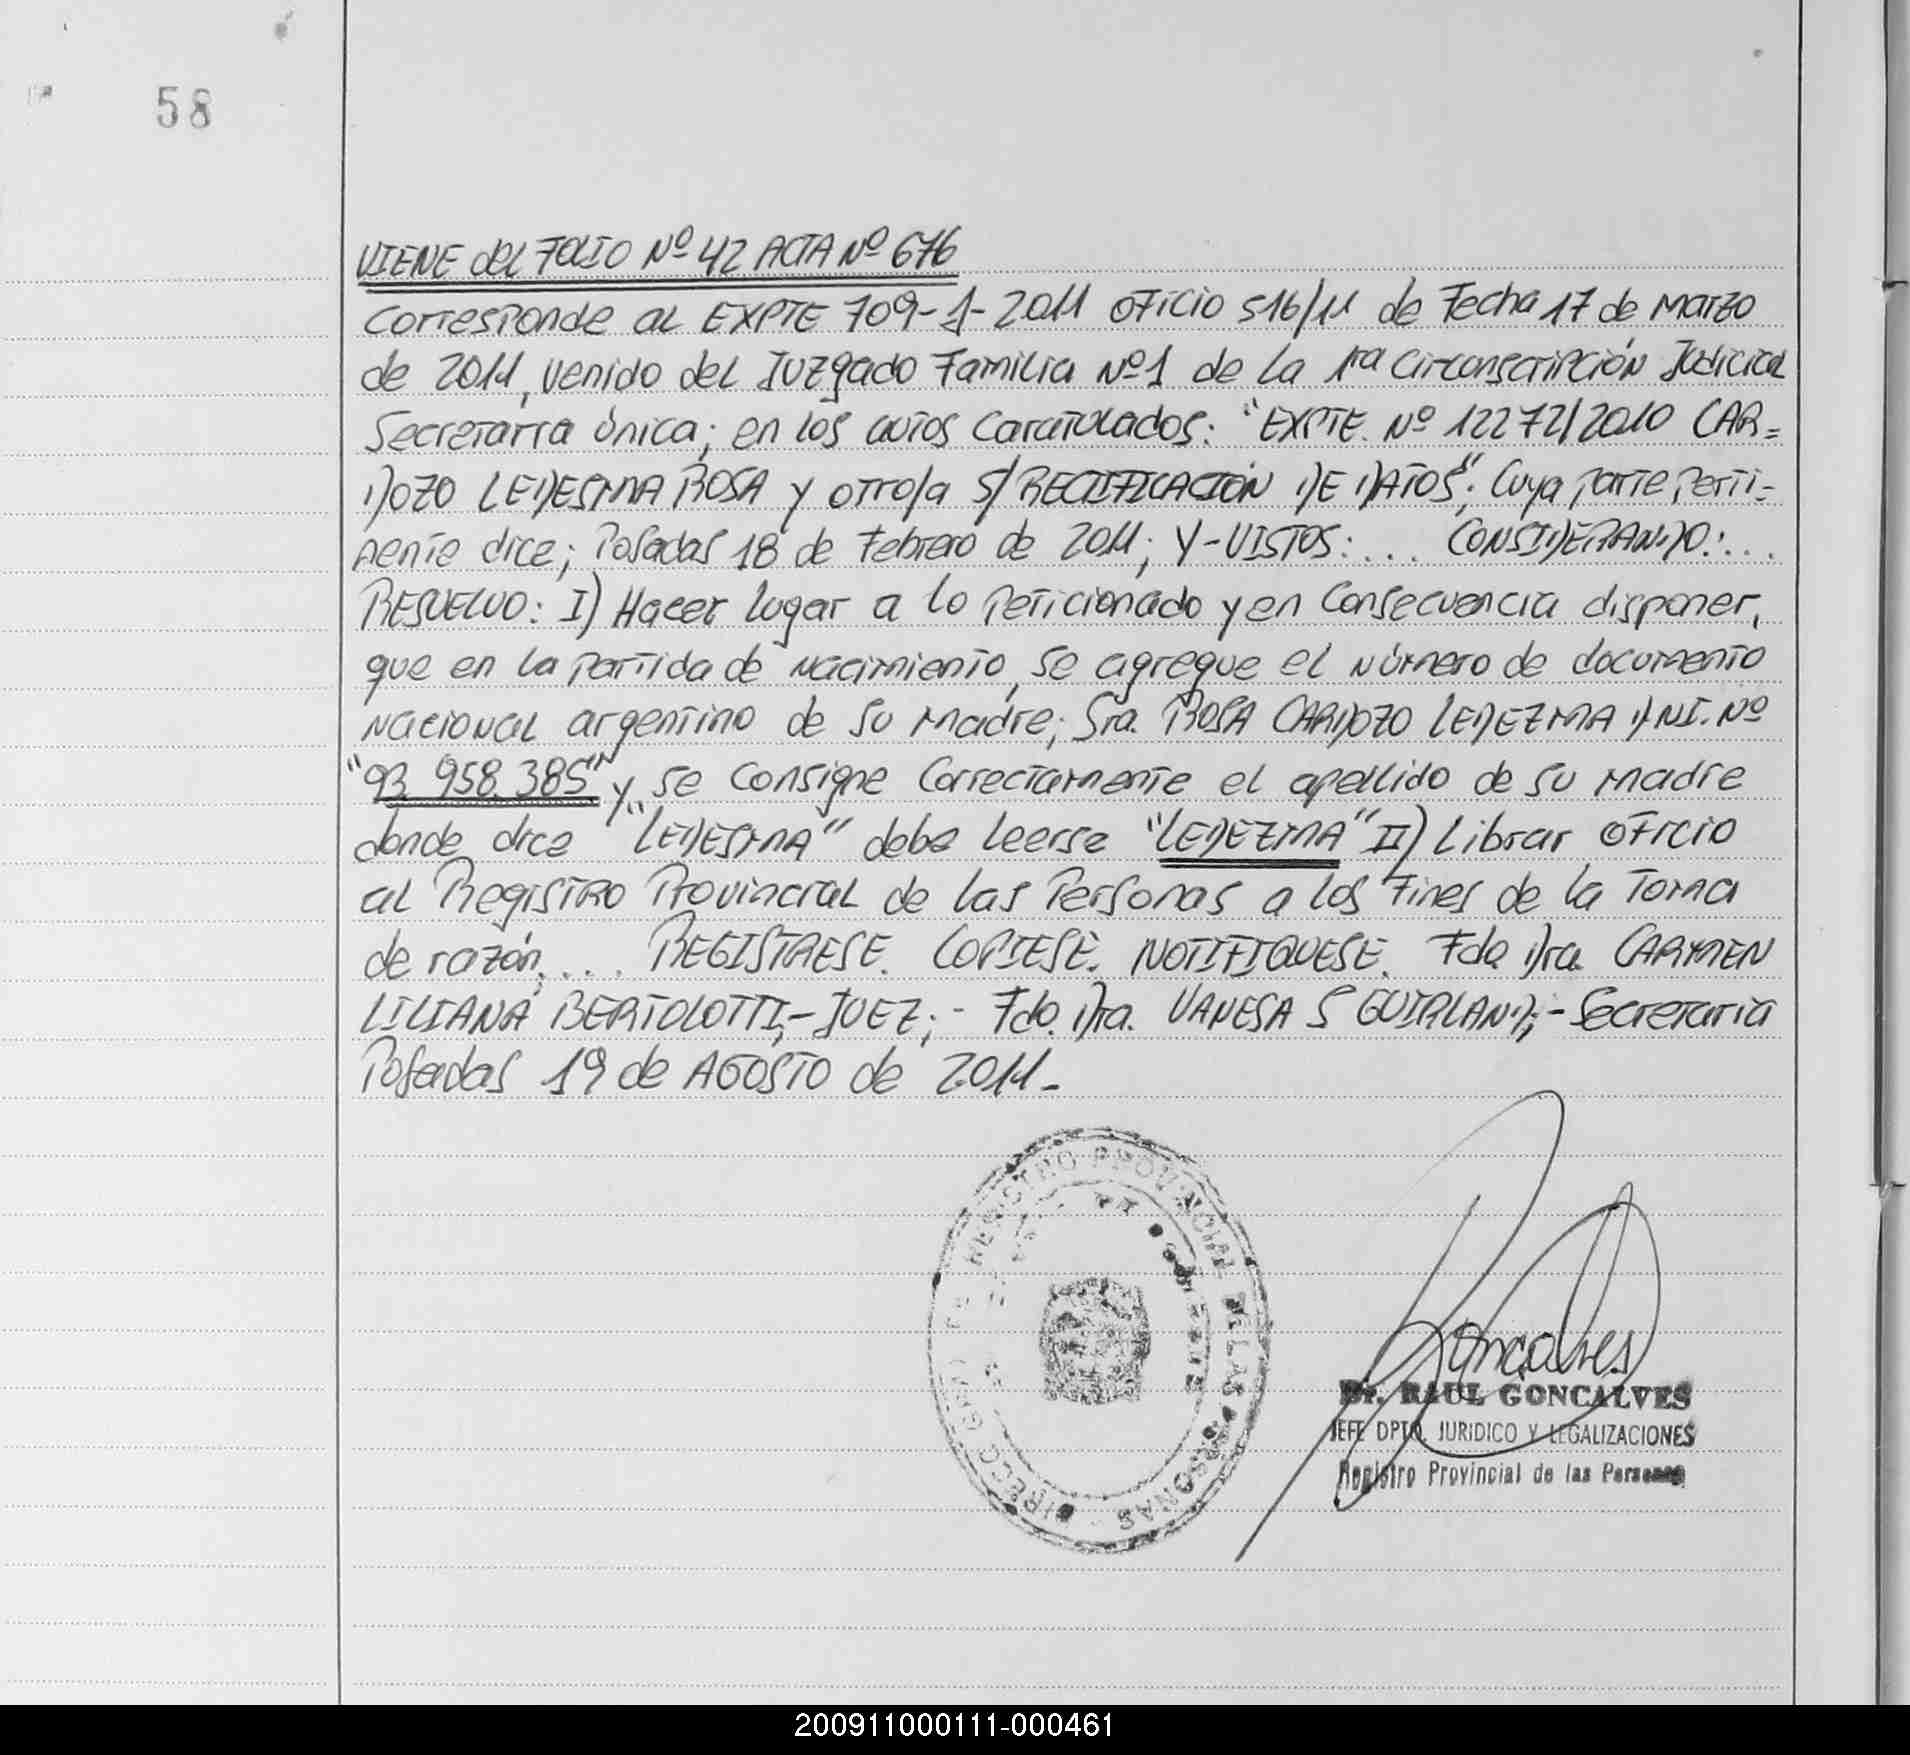 58
VIENE del FOLIO Nº 42 ACTA Nº 676
Corresponde al EXPTE 709-1-2011 oficio 516/11 de Fecha 17 de Marzo
de 2011, venido del Juzgado Familia Nº1 de la 1ra Circonscripción Judicial
Secretaría Única; en los autos caratulados: "EXPTE. Nº 12272/2010 CAR=
DOZO LEDESMA ROSA y otro/a S/RECTIFICACIÓN DE DATOS"; Cuya parte perti-
nente dice; Posadas 18 de Febrero de 2011; Y-VISTOS: ... CONSIDERANDO: ...
RESUELVO: I) Hacer lugar a lo peticionado y en Consecuencia disponer,
que en la partida de nacimiento, se agregue el número de documento
nacional argentino de su madre; Sra. ROSA CARDOZO LEDEZMA DNI. Nº
"93.958.385" y, se Consigne Correctamente el apellido de su madre
donde dice "LEDESMA" debe leerse "LEDEZMA" II) Librar oficio
al Registro Provincial de las Personas a los Fines de la Toma
de razón; ... REGISTRESE. COPIESE. NOTIFIQUESE. Fdo. Dra. CARMEN
LILIANA BERTOLOTTI;-JUEZ;- Fdo. Dra. VANESA S GUIRLAND;-Secretaria
Posadas 19 de AGOSTO de 2011-
DIRECC. GRAL. DE REGISTRO PROVINCIAL DE LAS PERSONAS
Goncalves
Dr. RAUL GONCALVES
JEFE DPTO. JURIDICO Y LEGALIZACIONES
Registro Provincial de las Personas
200911000111-000461